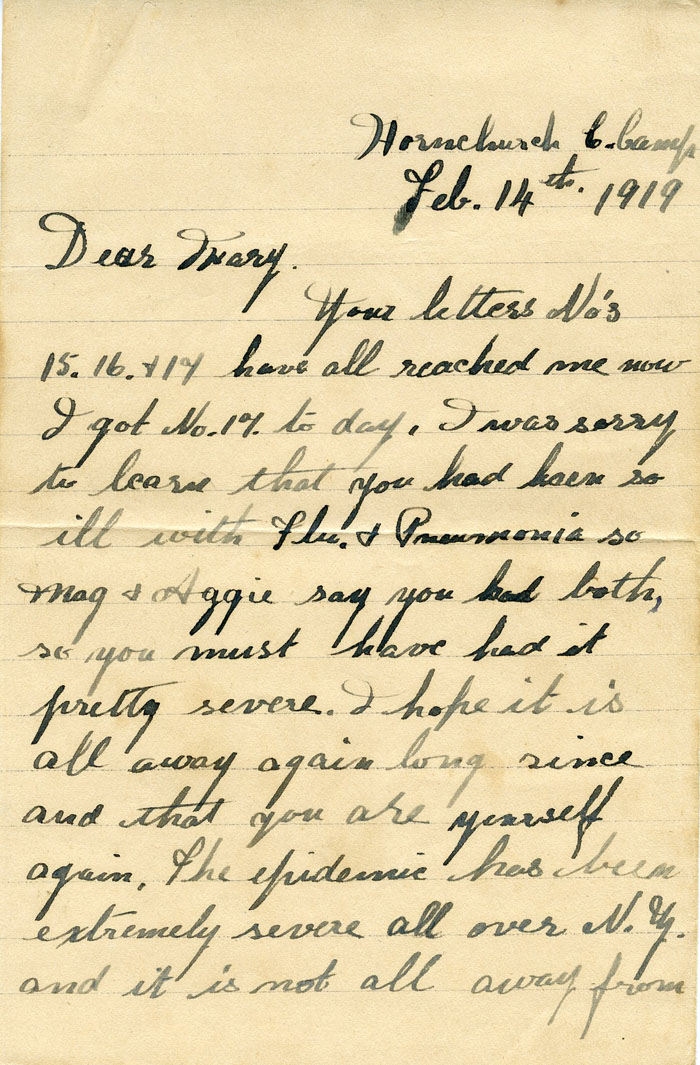 Hornchurch C. Camp
Feb. 14th. 1919
Dear Mary.
Your letters No's
15. 16. & 17 have all reached me now
I got No. 17. to day, I was sorry
to learn that you had been so
ill with Flu. & Pneumonia so
Mag & Aggie say you had both,
so you must have had it
pretty severe. I hope it is
all away again long since
and that you are yourself
again, The epidemic has been
extremely severe all over N.Z.
and it is not all away from